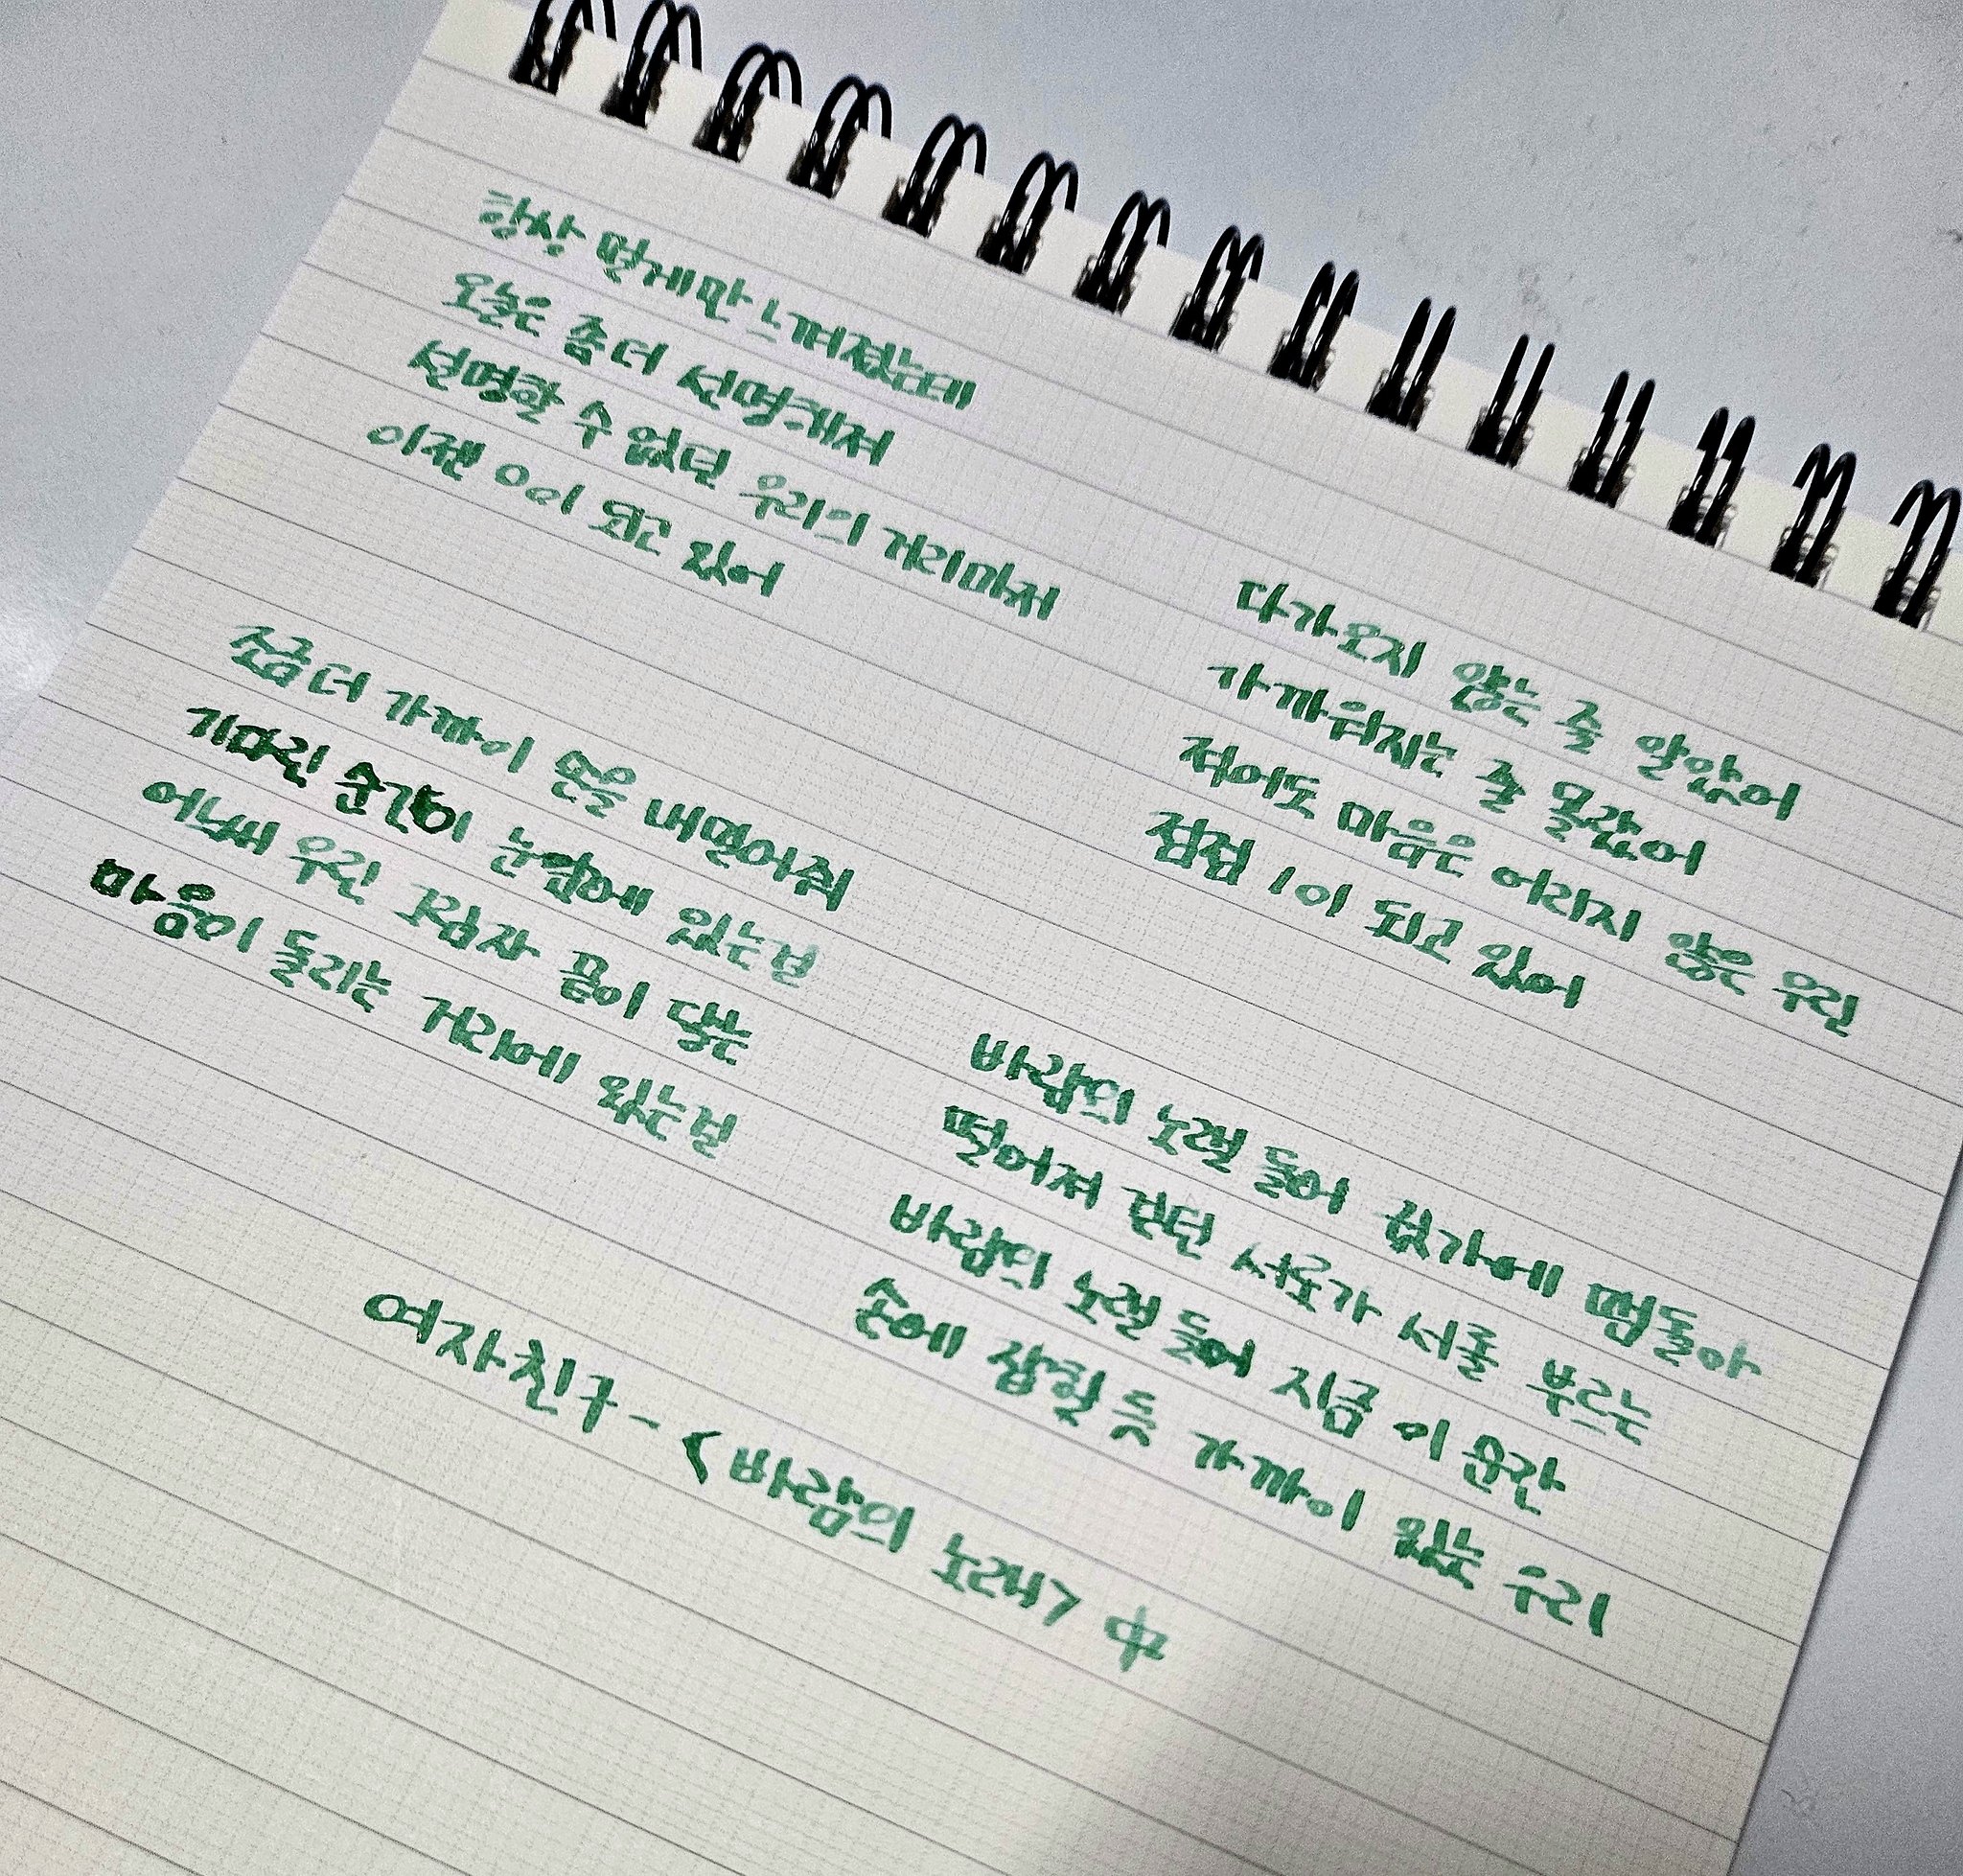 항상 멀게만 느껴졌는데
오늘은 좀 더 선명해져
설명할 수 없던 우리의 거리마저
이젠 0이 되고 있어
다가오지 않는 줄 알았어
가까워지는 줄 몰랐어
적어도 마음은 어리지 않은 우린
점점 1이 되고 있어
조금 더 가까이 손을 내밀어줘
기다린 순간이 눈앞에 있는걸
어느새 우린 그림자 끝이 닿는
마음이 들리는 거리에 있는걸
바람의 노랠 들어 귓가에 맴돌아
떨어져 걷던 서로가 서롤 부르는
바람의 노랠 들어 지금 이 순간
손에 잡힐 듯 가까이 있는 우리
여자친구 - <바람의 노래> 中